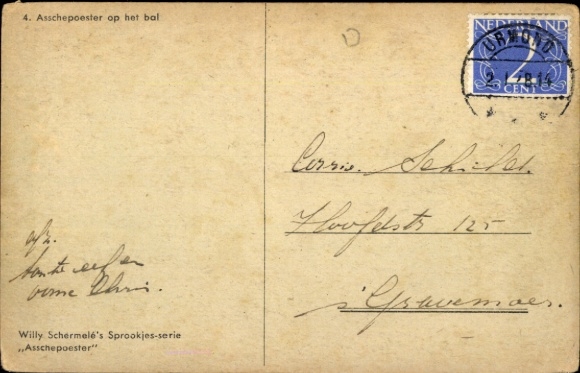 4. Asschepoester op het bal
NEDERLAND
2
CENT
URMOND
Corrie. Schilt.
Hoofdstr 125
's Gravemoer.
afz.
tante en
oome Chris.
Willy Schermelé's Sprookjes-serie
„Asschepoester"